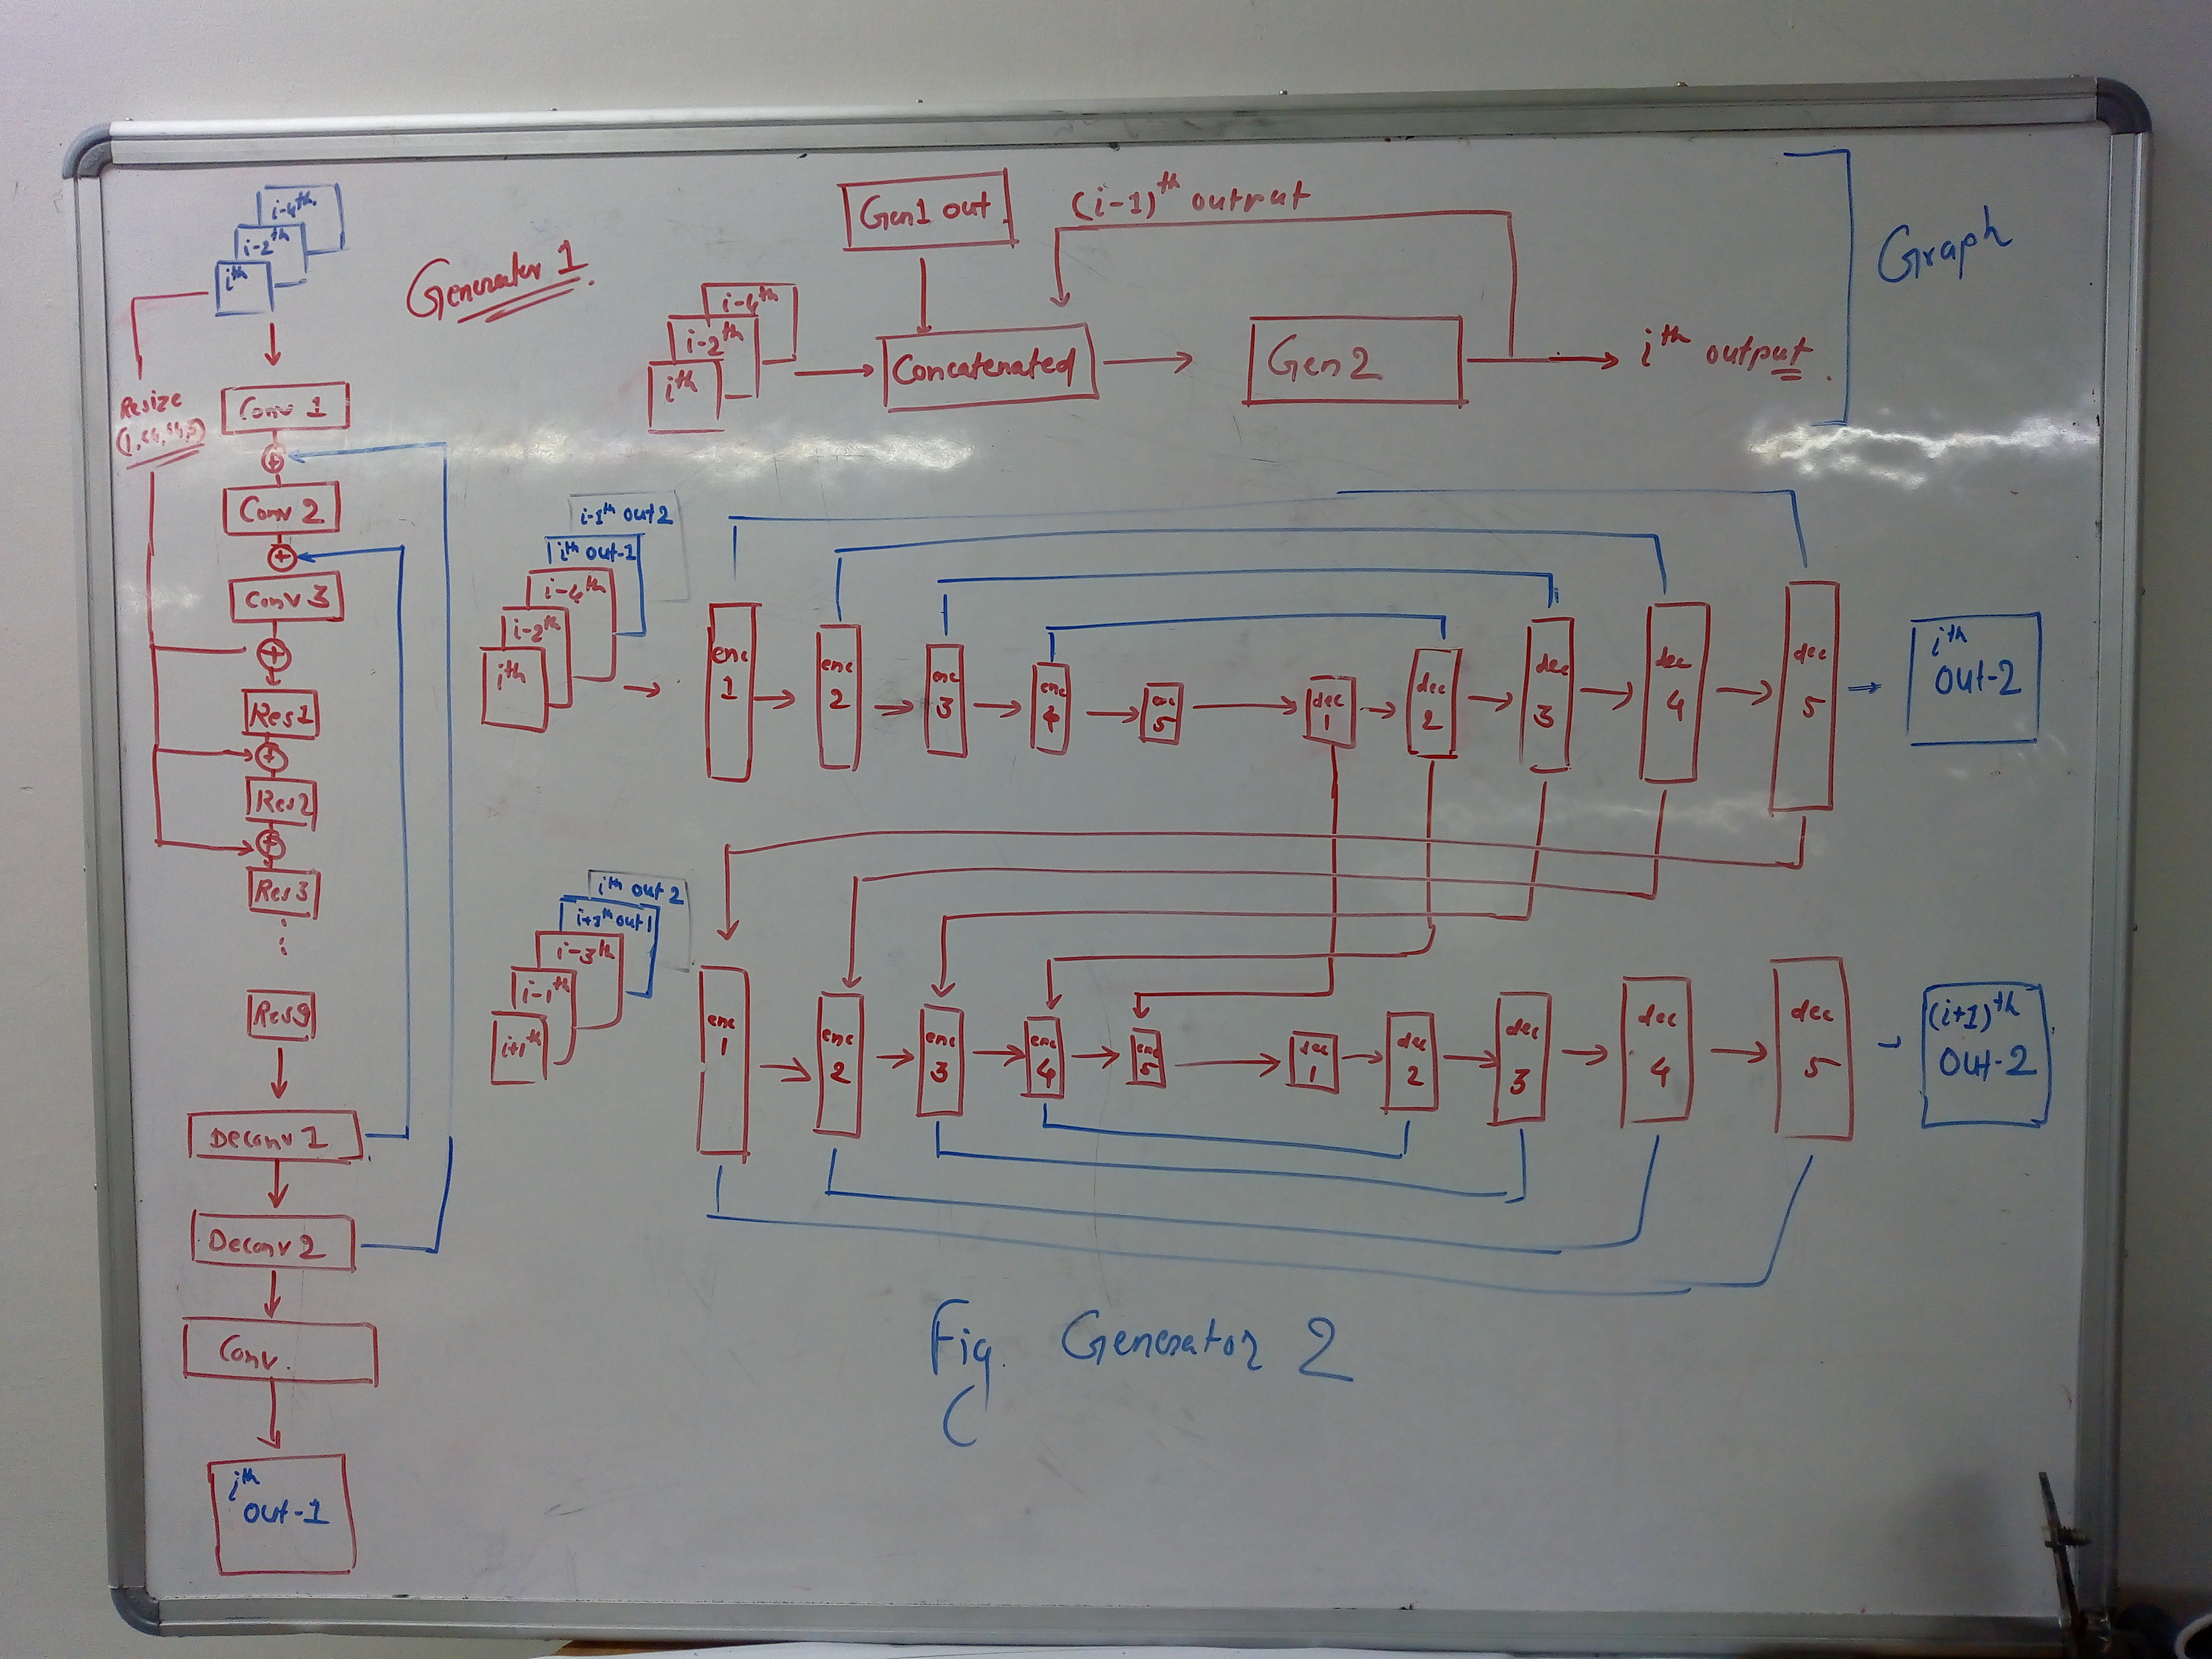 i-4th
i-2th
ith
Generator 1
Resize
Conv 1
+
Conv 2
+
Conv 3
+
Res1
+
Res2
+
Res3
Res9
Deconv 1
Deconv 2
Conv.
ith
out-1
Gen1 out
(i-1)th output
i-4th
i-2th
ith
Concatenated
Gen 2
ith output.
Graph
i-1th out 2
ith out-1
i-4th
i-2th
ith
enc 1
enc 2
enc 3
enc 4
enc 5
dec 1
dec 2
dec 3
dec 4
dec 5
ith
out-2
ith out 2
i+1th out 1
i-3th
i-1th
i+1th
enc 1
enc 2
enc 3
enc 4
enc 5
dec 1
dec 2
dec 3
dec 4
dec 5
(i+1)th
out-2
Fig. Generator 2
(